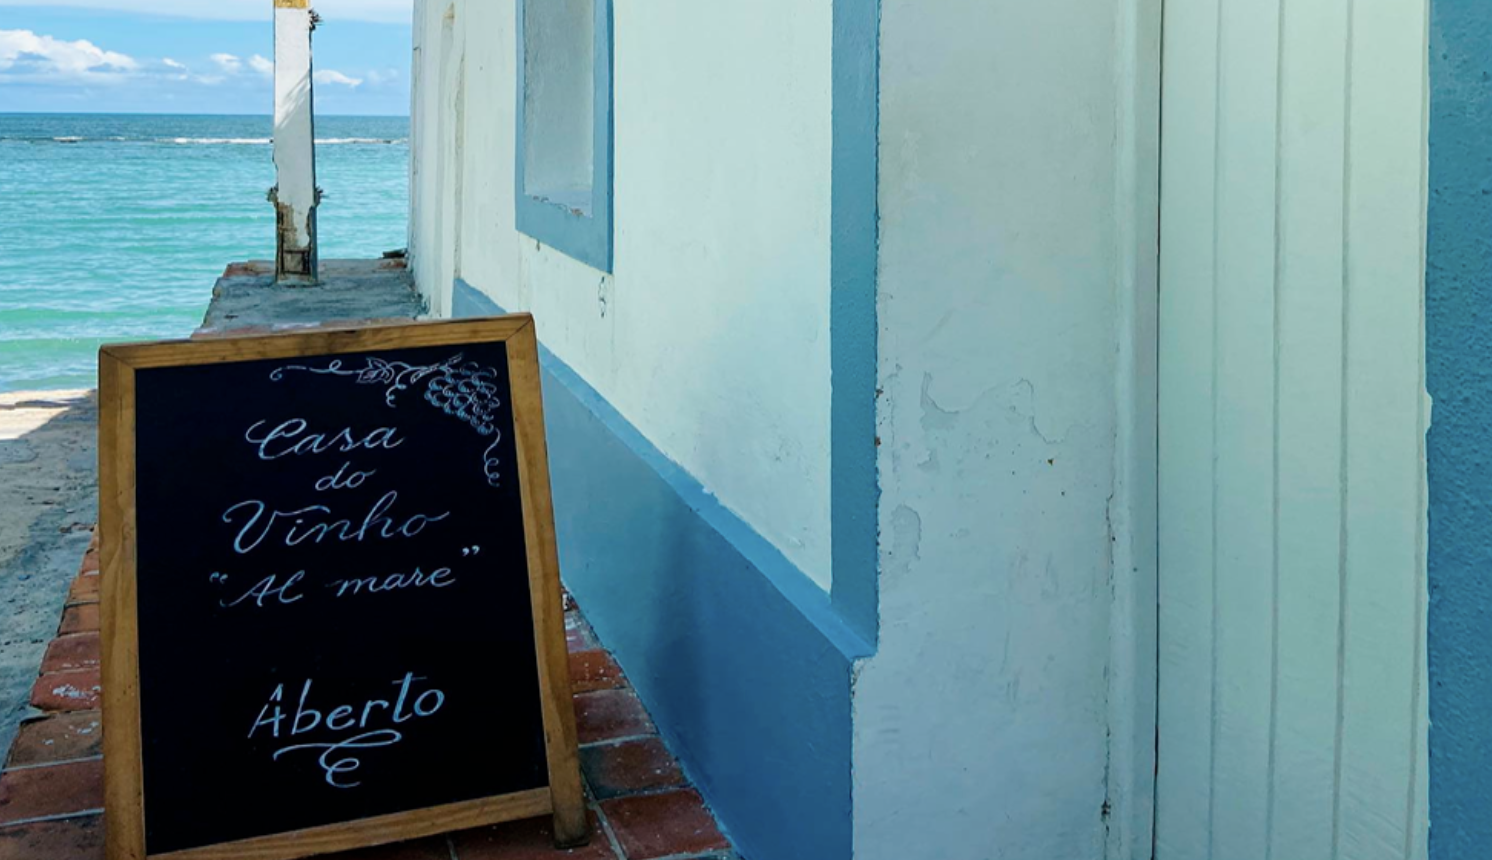 Casa
do
Vinho
“Al mare”
Aberto